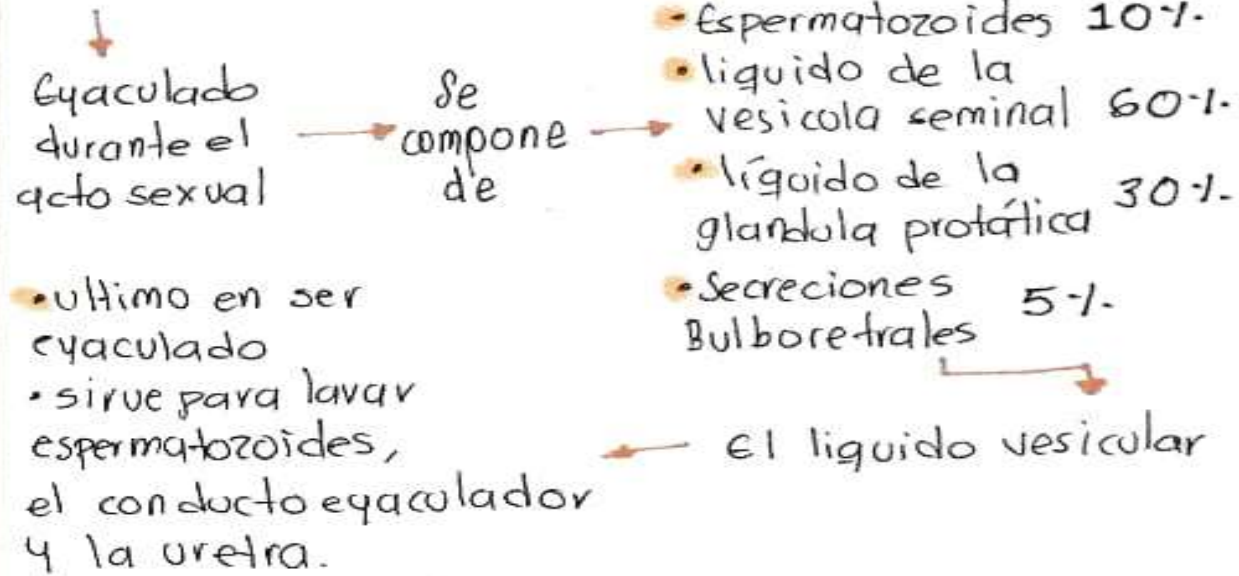 Eyaculado
durante el
acto sexual
Se
compone
de
• Espermatozoides 10%
• liquido de la
vesicola seminal 60%
• líquido de la
glandula protática 30%
• Secreciones
Bulboretrales 5%
El liquido vesicular
• ultimo en ser
eyaculado
• sirve para lavar
espermatozoides,
el conducto eyaculador
y la uretra.